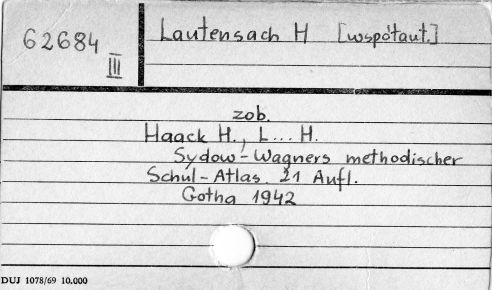 62684
III
Lautensach H [współaut.]
zob.
Haack H., L... H.
Sydow-Wagners methodischer
Schul-Atlas. 21 Aufl.
Gotha 1942
DUJ 1078/69 10.000